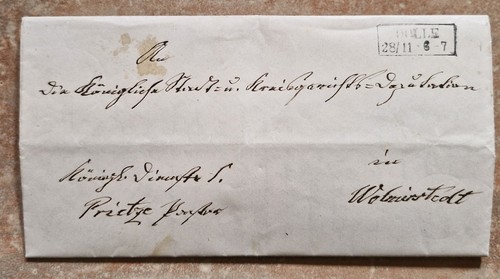 An
die Königliche Stadt- u. Kreisgerichts-Deputation
in
Wolmirstedt
Königl. Dienst S.
Prietze Pastor
28/11 6-7